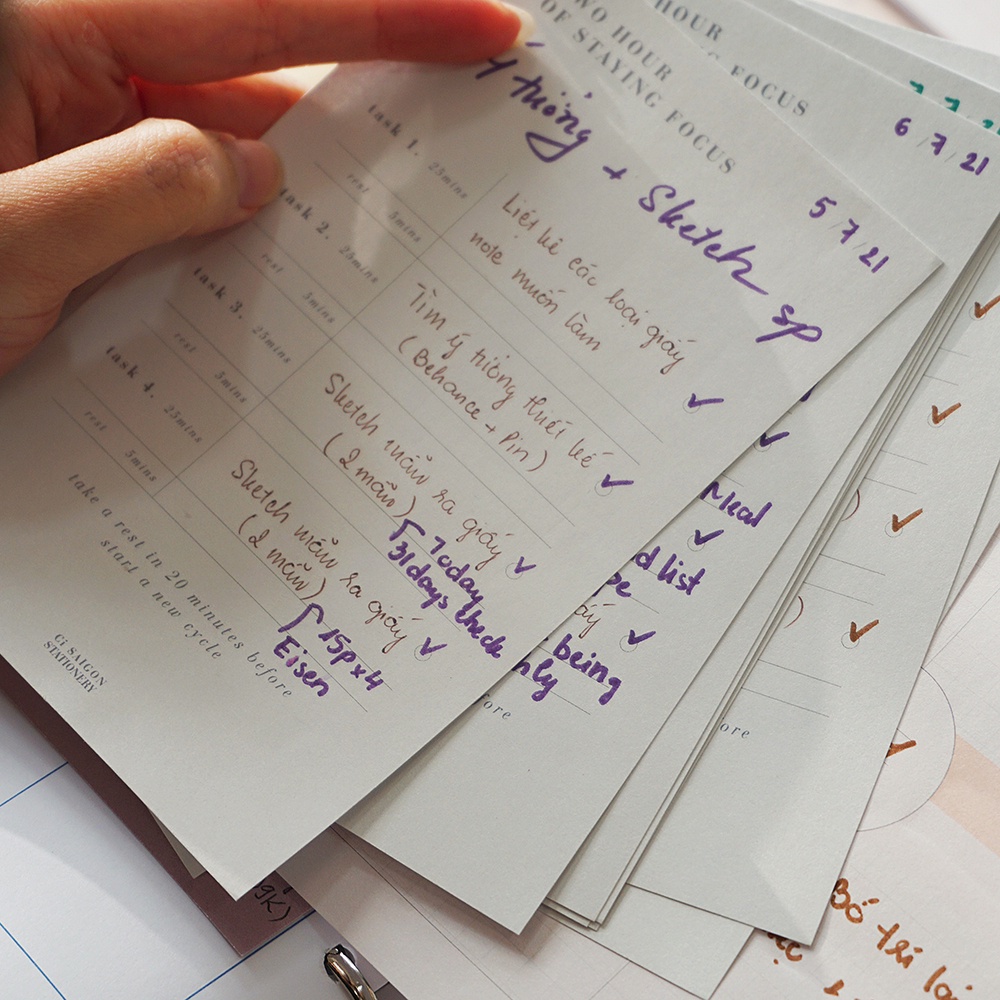 TWO HOUR
OF STAYING FOCUS
5/7/21
Ý tưởng + Sketch sp
task 1. 25mins
Liệt kê các loại giấy
note muốn làm
rest 5mins
task 2. 25mins
Tìm ý tưởng thiết kế
(Behance + Pin)
rest 5mins
task 3. 25mins
Sketch mẫu ra giấy
(2 mẫu)
Today
31days check
rest 5mins
task 4. 25mins
Sketch mẫu ra giấy
(2 mẫu)
15px4
Eisen
rest 5mins
take a rest in 20 minutes before
start a new cycle
Ci SAIGON
STATIONERY
HOUR
FOCUS
6/7/21
Meal
d list
pe
giấy
being
nly
fore
HOUR
ore
gk)
Bố trí